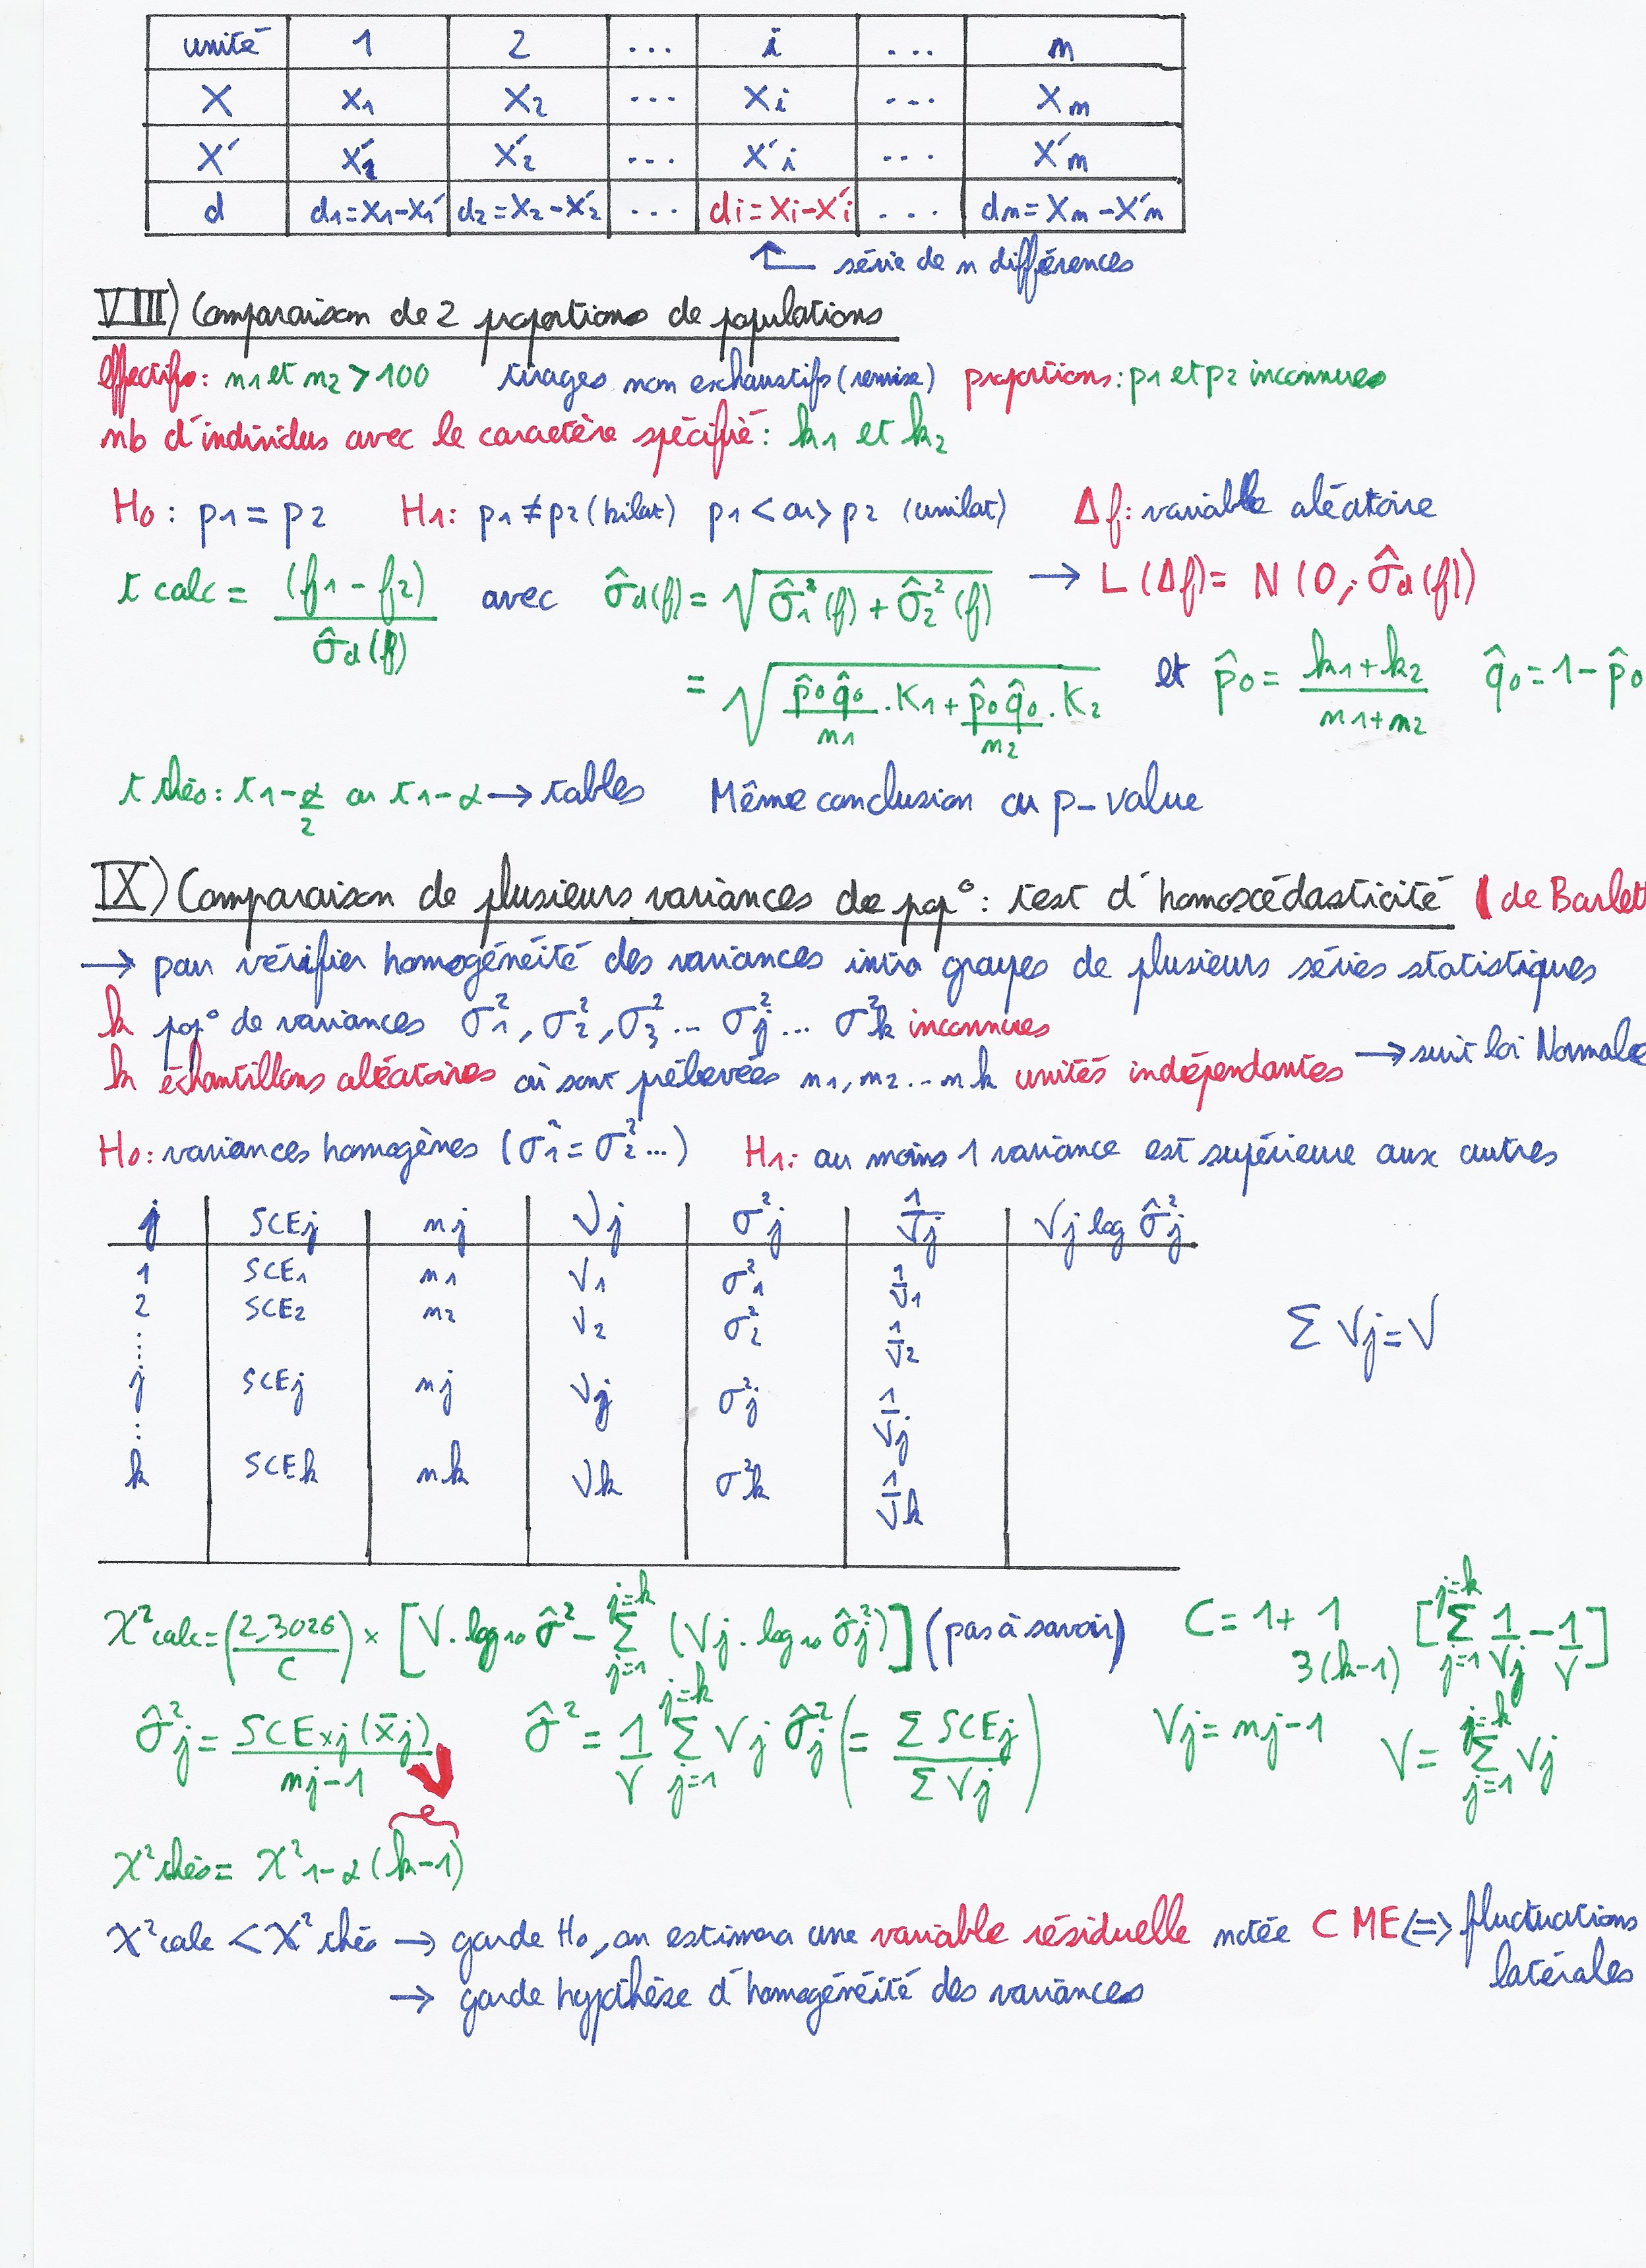 unité 1 2 ... i ... n
X x1 x2 ... xi ... xn
X' x'1 x'2 ... x'i ... x'n
d d1=x1-x1' d2=x2-x'2 ... di=xi-x'i ... dn=xn-x'n
↑ série de n différences
VIII) Comparaison de 2 proportions de populations
effectifs: n1 et n2 > 100 tirages non exhaustifs (remise) proportions: p1 et p2 inconnues
nb d'individus avec le caractère spécifié: k1 et k2
H0: p1 = p2 H1: p1 ≠ p2 (bilat) p1 < ou > p2 (unilat) Δf: variable aléatoire
t calc = (f1 - f2) / σ̂d(f) avec σ̂d(f) = √(σ̂1²(f) + σ̂2²(f)) → L(Δf) = N(0; σ̂d(f))
= √(p̂0q̂0/n1 . K1 + p̂0q̂0/n2 . K2) et p̂0 = (k1+k2)/(n1+n2) q̂0 = 1 - p̂0
t théo: t1-α/2 ou t1-α → tables Même conclusion ou p-value
IX) Comparaison de plusieurs variances de pop°: test d'homoscédasticité (de Barlett
→ pour vérifier homogénéité des variances intra groupes de plusieurs séries statistiques
k pop° de variances σ²1, σ²2, σ²3 ... σ²j ... σ²k inconnues
k échantillons aléatoires où sont prélevées n1, n2 ... nk unités indépendantes → suit loi Normale
H0: variances homogènes (σ²1 = σ²2 ...) H1: au moins 1 variance est supérieure aux autres
j SCEj nj Vj σ²j 1/Vj Vj log σ̂²j
1 SCE1 n1 V1 σ²1 1/V1
2 SCE2 n2 V2 σ²2 1/V2
⋮
Σ Vj = V
j SCEj nj Vj σ²j 1/Vj
⋮
k SCEk nk Vk σ²k 1/Vk
χ² calc = (2,3026/C) × [V . log10 σ̂² - Σ j=1 j=k (Vj . log10 σ̂²j)] (pas à savoir) C = 1 + 1 3(k-1) [Σ j=1 j=k 1/Vj - 1/V]
σ̂²j = SCExj(x̄j) / nj-1 σ̂² = 1/V Σ j=1 j=k Vj σ̂²j (= Σ SCEj / Σ Vj) Vj = nj-1 V = Σ j=1 j=k Vj
χ² théo = χ² 1-α (k-1)
χ² calc < χ² théo → garde H0, on estimera une variable résiduelle notée CME (=> fluctuations
latérales
→ garde hypothèse d'homogénéité des variances